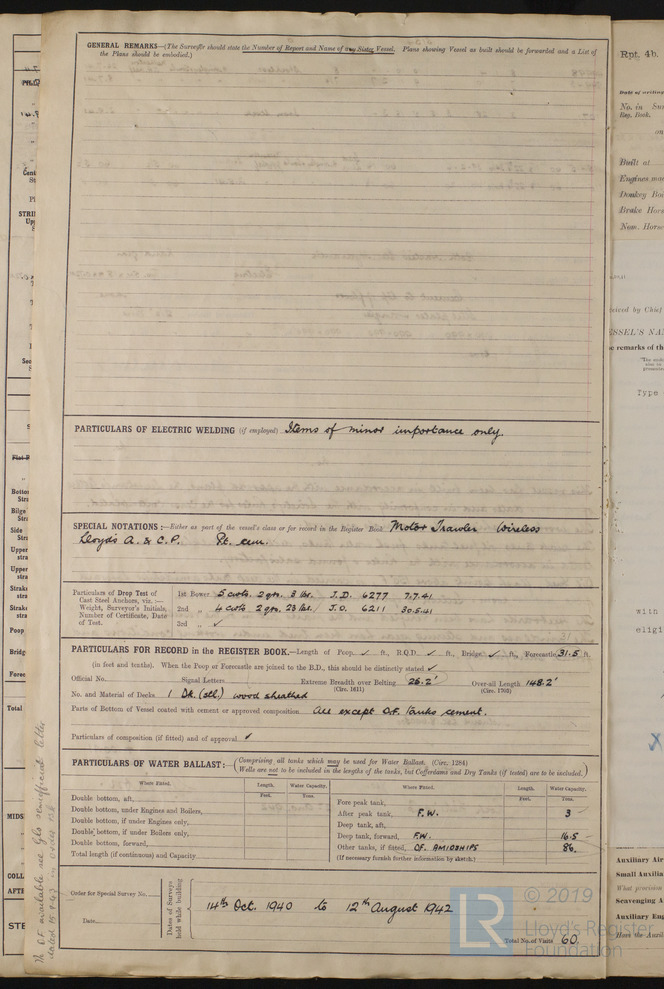 GENERAL REMARKS—(The Surveyor should state the Number of Report and Name of any Sister Vessel. Plans showing Vessel as built should be forwarded and a List of
the Plans should be embodied.)
PARTICULARS OF ELECTRIC WELDING (if employed) Items of minor importance only.
SPECIAL NOTATIONS:—Either as part of the vessel's class or for record in the Register Book Motor Trawler Wireless
Lloyd's A. & C.P. Pt. cem.
Particulars of Drop Test of
Cast Steel Anchors, viz.:—
Weight, Surveyor's Initials,
Number of Certificate, Date
of Test.
1st Bower 5 cwts. 2 qrs. 3 lbs. J.D. 6277 7.7.41
2nd „ 4 cwts. 2 qrs. 23 lbs. J.D. 6211 30.5.41
3rd „ ✓
PARTICULARS FOR RECORD in the REGISTER BOOK.—Length of Poop ✓ ft., R.Q.D. ✓ ft., Bridge ✓ ft., Forecastle 31.5 ft.
(in feet and tenths). When the Poop or Forecastle are joined to the B.D., this should be distinctly stated ✓
Official No. Signal Letters Extreme Breadth over Belting 26.2' Over-all Length 148.2'
(Circ. 1611) (Circ. 1703)
No. and Material of Decks 1 Dk. (stl.) wood sheathed
Parts of Bottom of Vessel coated with cement or approved composition All except O.F. Tanks cement.
Particulars of composition (if fitted) and of approval ✓
PARTICULARS OF WATER BALLAST:—(Comprising all tanks which may be used for Water Ballast. (Circ. 1284)
Wells are not to be included in the lengths of the tanks, but Cofferdams and Dry Tanks (if tested) are to be included.)
Where Fitted. Length. Water Capacity. Where Fitted. Length. Water Capacity.
Feet. Tons. Feet. Tons.
Double bottom, aft,
Double bottom, under Engines and Boilers,
Double bottom, if under Engines only,
Double bottom, if under Boilers only,
Double bottom, forward,
Total length (if continuous) and Capacity
Fore peak tank,
After peak tank, F.W. 3
Deep tank, aft,
Deep tank, forward, F.W. 16.5
Other tanks, if fitted, O.F. AMIDSHIPS 86.
(If necessary furnish further information by sketch.)
Order for Special Survey No.
Date
Dates of Surveys held while building
14th Oct. 1940 to 12th August 1942
Total No. of Visits 60.
© 2019
LR
Lloyd's Register
Foundation
Rpt. 4b.
No. in
Reg. Book.
Built at
Type
with
Auxiliary Air
Small Auxilia
What provision
Scavenging A
Auxiliary Eng